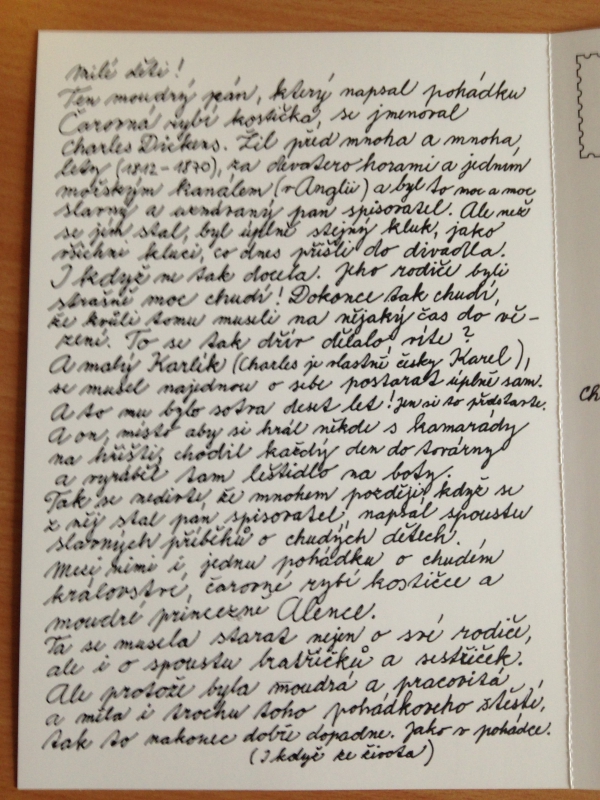 Milé děti!
Ten moudrý pán, který napsal pohádku
Čarovná rybí kostička, se jmenoval
Charles Dickens. Žil před mnoha a mnoha
lety (1812–1870), za devatero horami a jedním
mořským kanálem (v Anglii) a byl to moc a moc
slavný a uznávaný pan spisovatel. Ale než
se jím stal, byl úplně stejný kluk, jako
všichni kluci, co dnes přišli do divadla.
I když ne tak docela. Jeho rodiče byli
strašně moc chudí! Dokonce tak chudí,
že kvůli tomu museli na nějaký čas do vě-
zení. To se tak dřív dělalo, víte?
A malý Karlík (Charles je vlastně česky Karel),
se musel najednou o sebe postarat úplně sám.
A to mu bylo sotva deset let! Jen si to představte.
A on, místo aby si hrál někde s kamarády
na hřišti, chodil každý den do továrny
a vyráběl tam leštidlo na boty.
Tak se nedivte, že mnohem později, když se
z něj stal pan spisovatel, napsal spoustu
slavných příběhů o chudých dětech.
Mezi nimi i jednu pohádku o chudém
království, čarovné rybí kostičce a
moudré princezně Alence.
Ta se musela starat nejen o své rodiče,
ale i o spoustu bratříčků a sestřiček.
Ale protože byla moudrá a pracovitá
a měla i trochu toho pohádkového štěstí,
tak to nakonec dobře dopadne. Jako v pohádce.
(I když ze života)
Ch